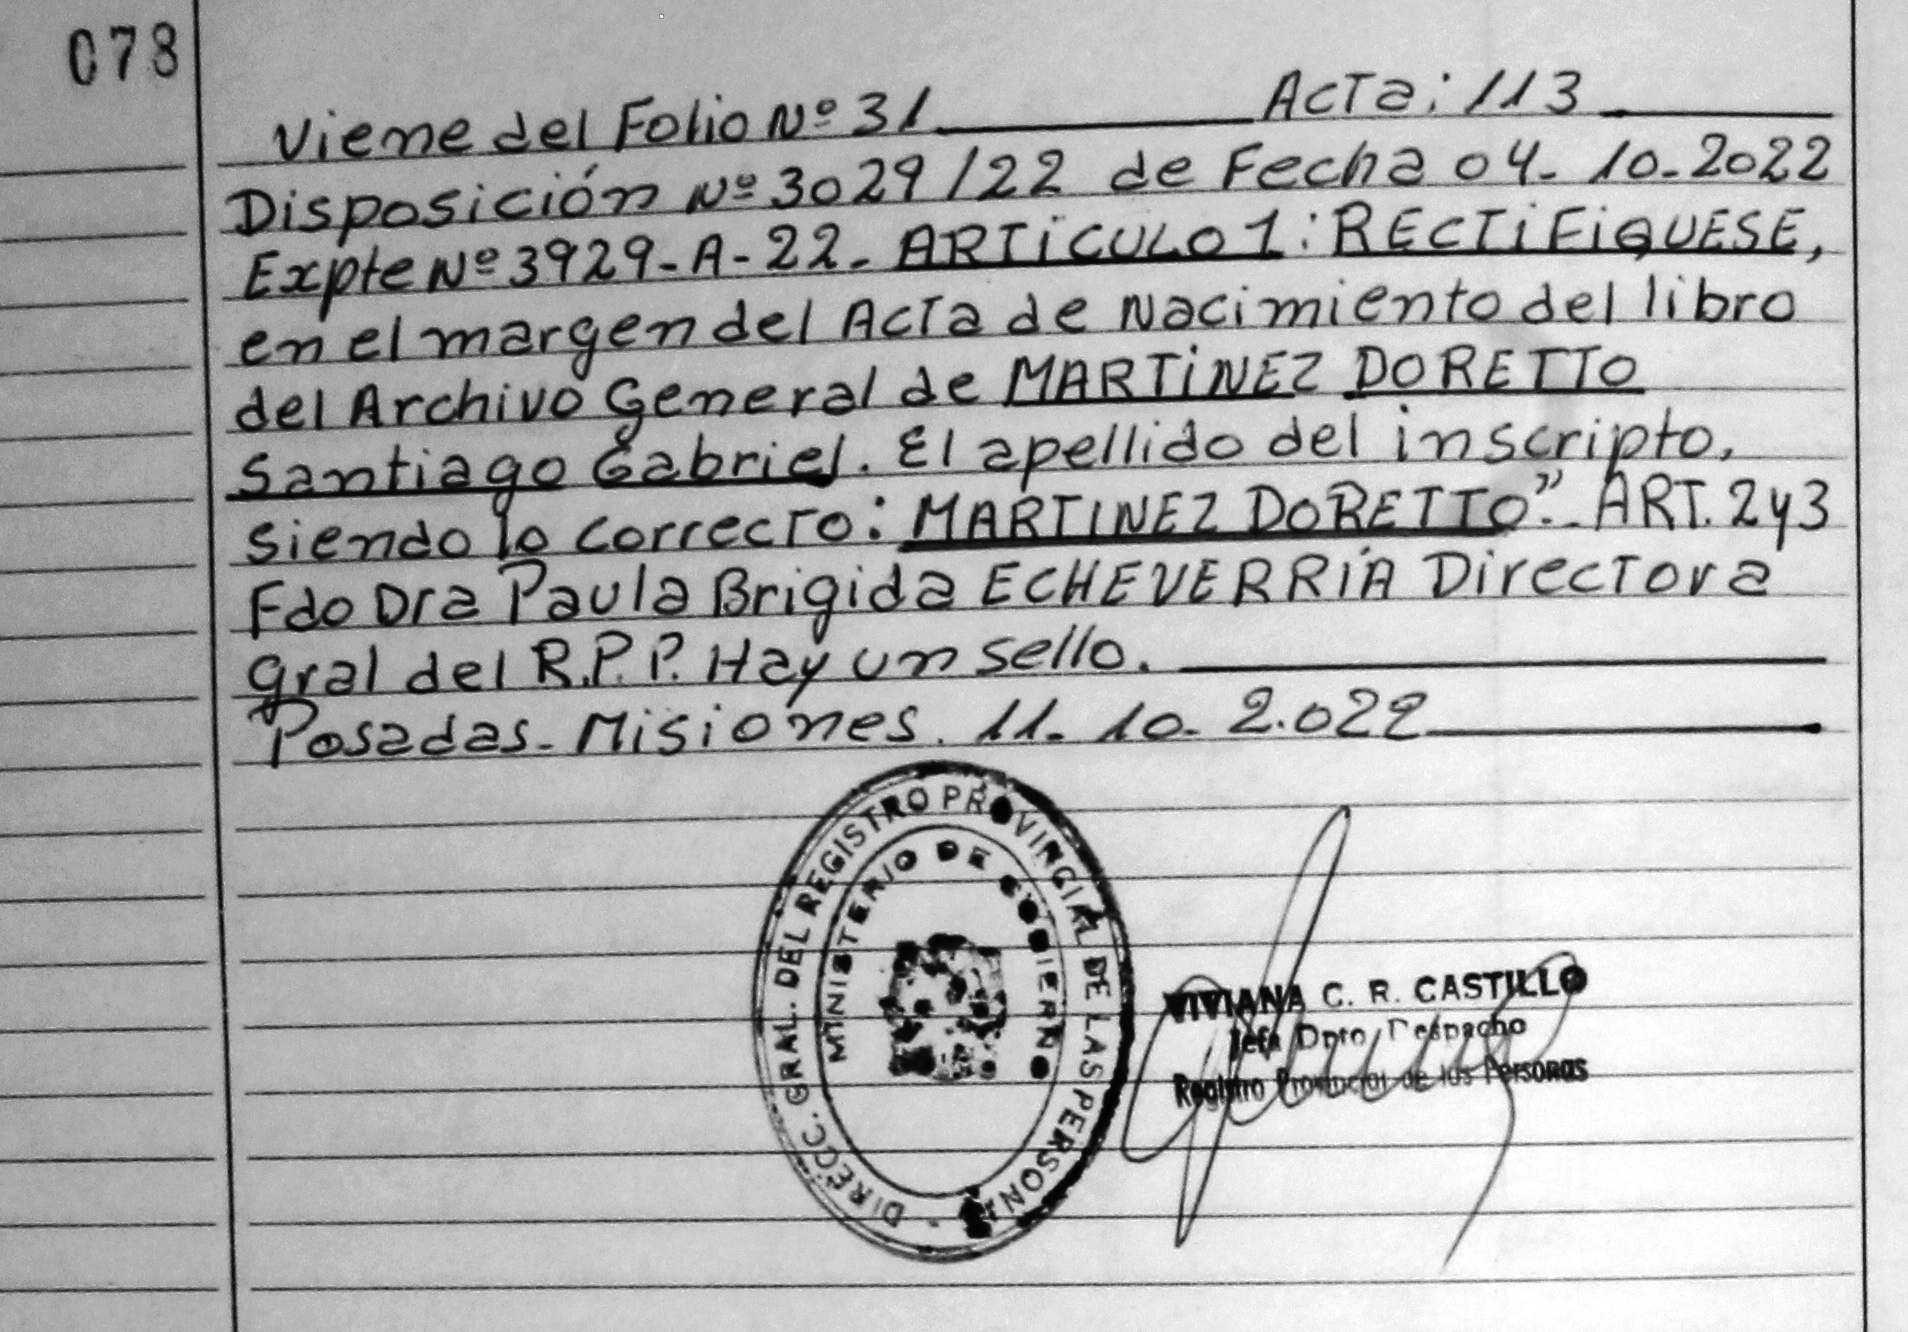 078
Viene del Folio Nº 31 Acta: 113
Disposición Nº 3029/22 de Fecha 04-10-2022
Expte Nº 3929-A-22- ARTICULO 1: RECTIFIQUESE,
en el margen del Acta de Nacimiento del libro
del Archivo General de MARTINEZ DORETTO
Santiago Gabriel. El apellido del inscripto,
siendo lo correcto: MARTINEZ DORETTO".- ART. 2 y 3
Fdo Dra Paula Brigida ECHEVERRIA Directora
gral del R.P.P. Hay un sello.
Posadas- Misiones. 11-10-2.022
DIRECC. GRAL. DEL REGISTRO PROVINCIAL DE LAS PERSONAS
MINISTERIO DE GOBIERNO
VIVIANA C. R. CASTILLO
Jefa Dpto. Despacho
Registro Provincial de las Personas